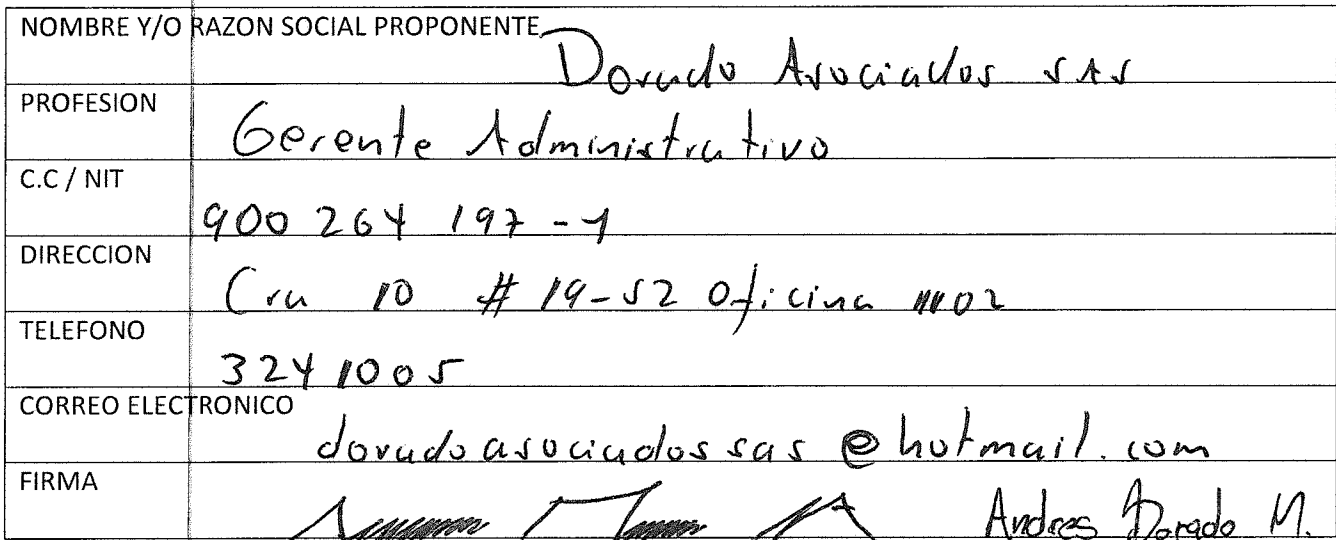 NOMBRE Y/O RAZON SOCIAL PROPONENTE Dorado Asociados SAS
PROFESION Gerente Administrativo
C.C / NIT 900 264 197 - 1
DIRECCION Cra 10 # 19-52 Oficina 1102
TELEFONO 324 1005
CORREO ELECTRONICO doradoasociadossas@hotmail.com
FIRMA Andres Dorado M.